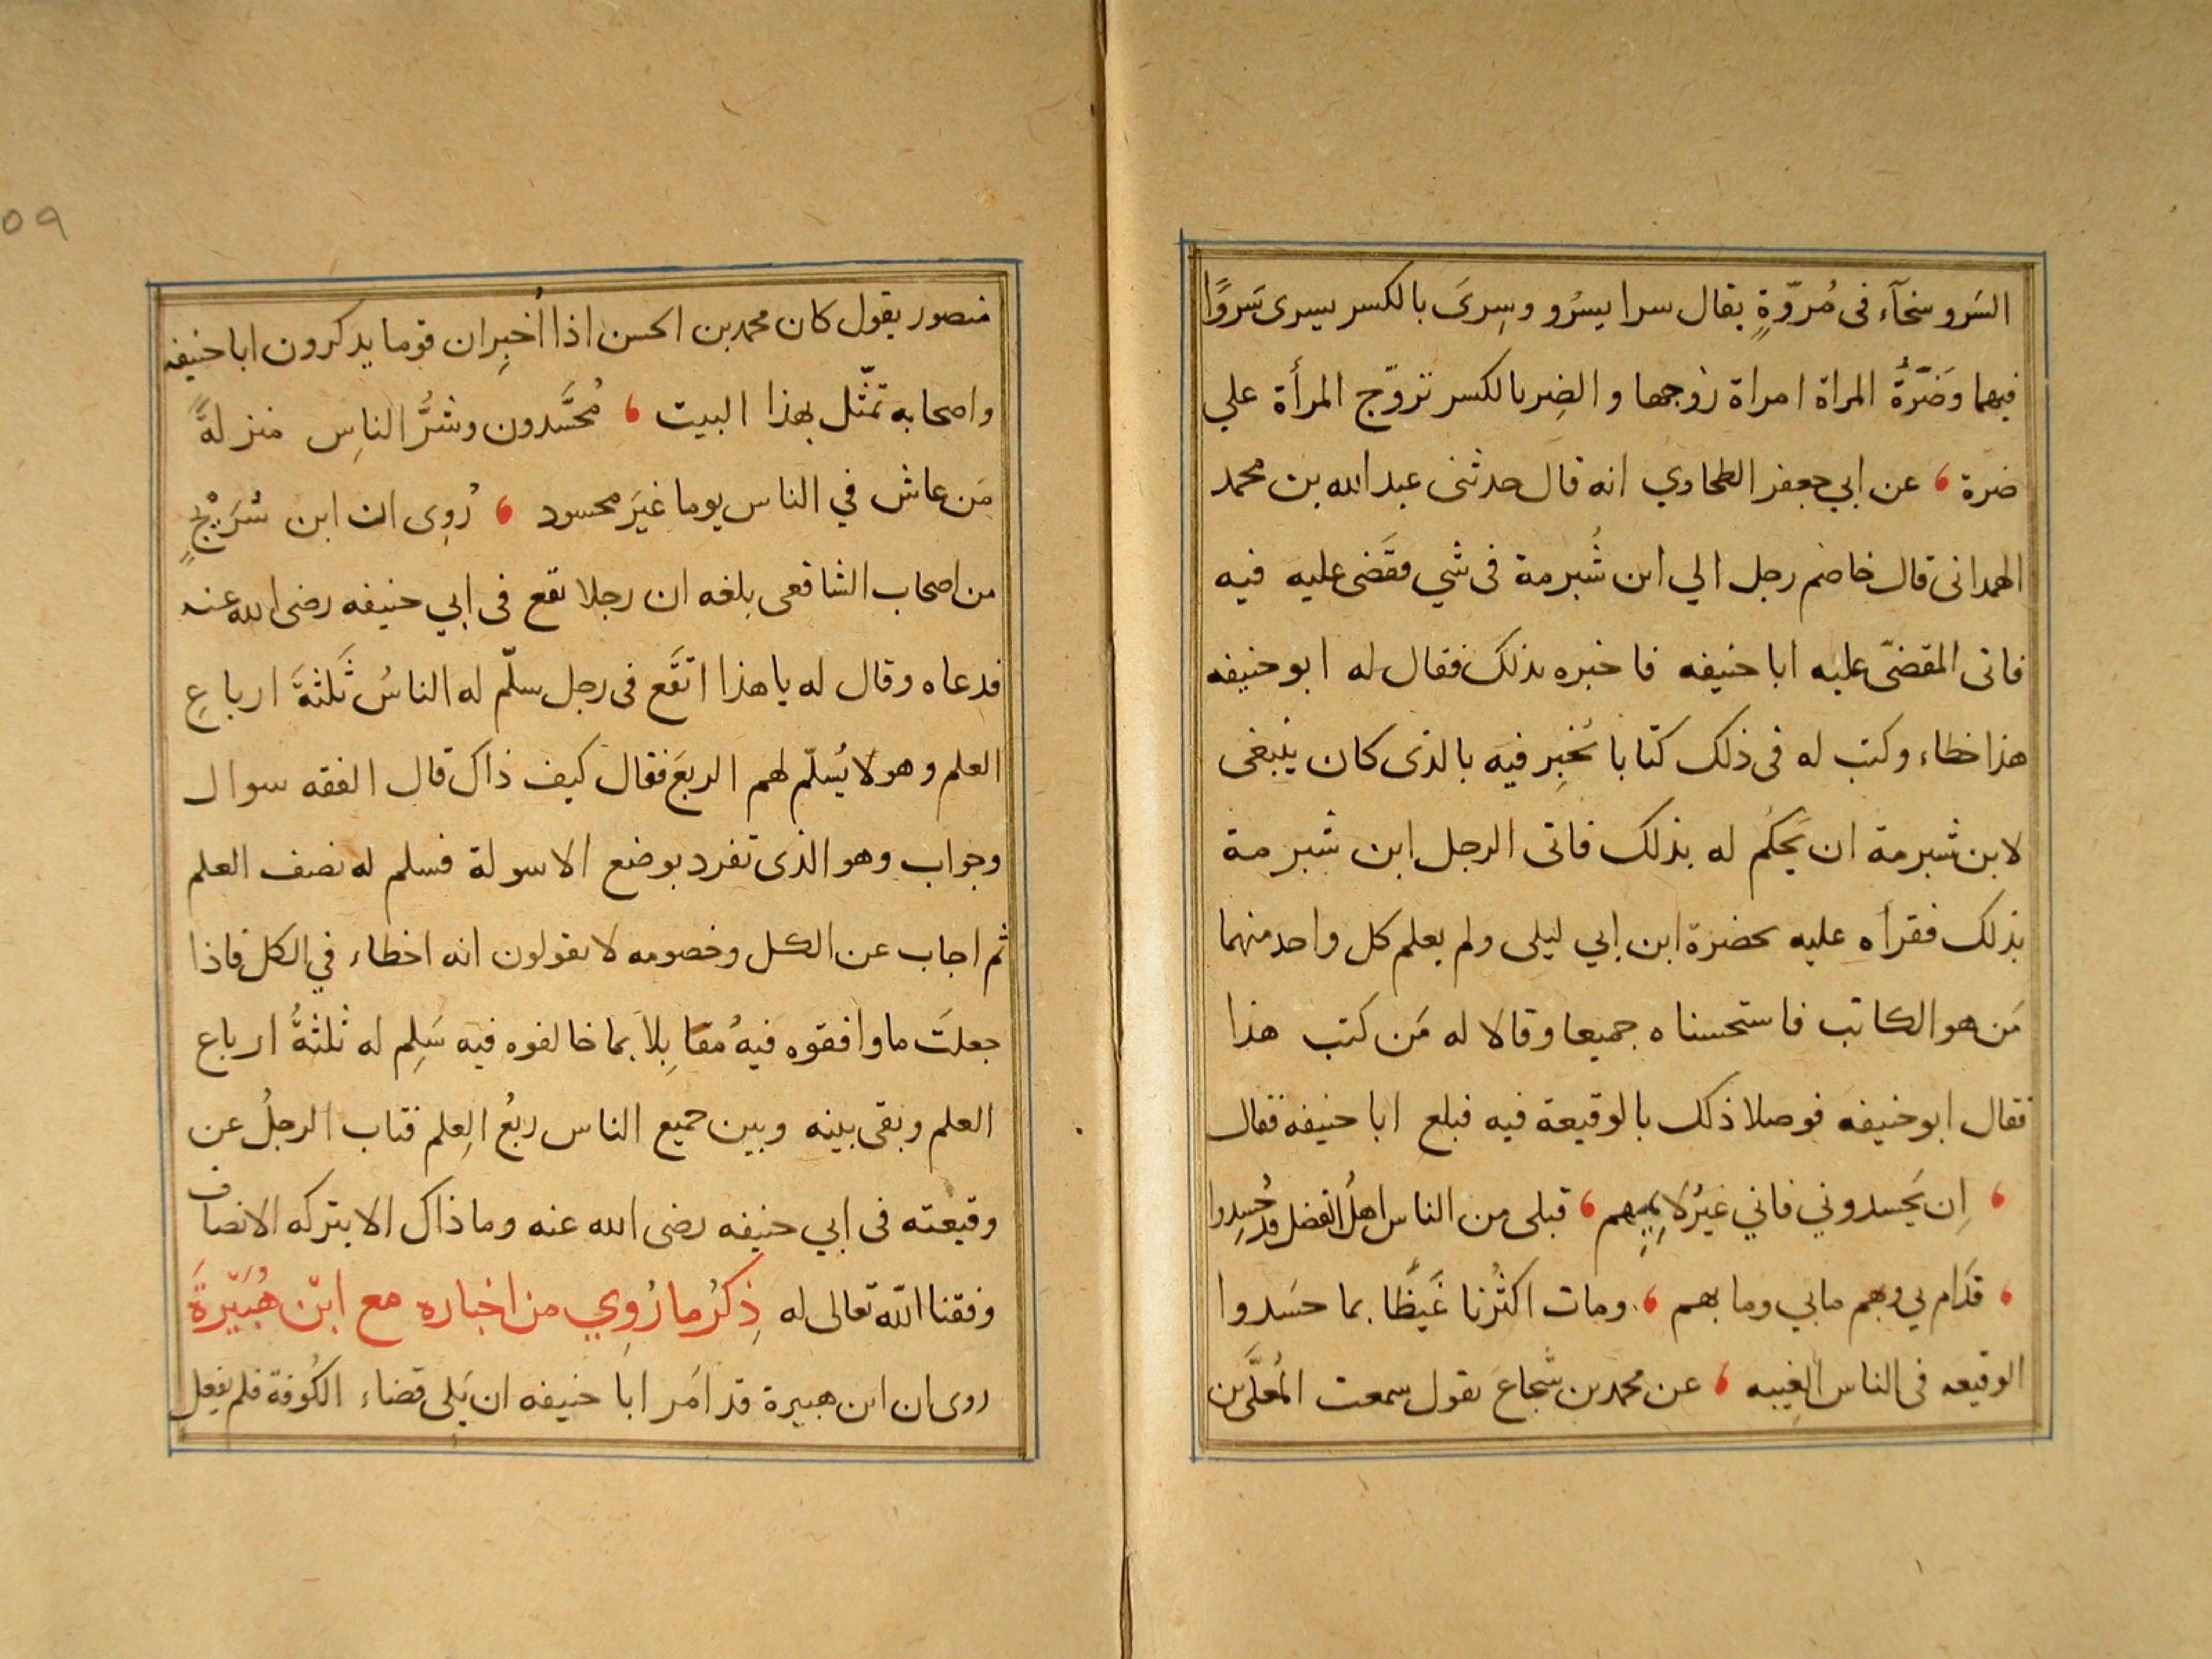 السَرو سخآء فى مُروّةٍ يقال سرا يسرُو وسِرىَ بالكسر يسرى سَروًا
فيهما وَضَرّةُ المراة امراة زوجها والضِر بالكسر تزوّج المرأة علي
ضرة ، عن ابي جعفر الطحاوي انه قال حدثنى عبد الله بن محمد
الهمدانى قال خاصم رجل الي ابن شُبرمة فى شي فقَضى عليه فيه
فاتى المقضىّ عليه ابا حنيفه فاخبره بذلك فقال له ابو حنيفه
هذا خطاء وكتب له فى ذلك كتابا يُخبِر فيه بالذى كان ينبغى
لابن شبرمة ان يَحكُم له بذلك فاتى الرجل ابن شبرمة
بذلك فقرأه عليه بحضرة ابن ابي ليلى ولم يعلم كل واحد منهما
مَن هو الكاتب فاستحسناه جميعا وقالا له مَن كتب هذا
فقال ابو حنيفه فوصلا ذلك بالوقيعة فيه فبلغ ابا حنيفه فقال
، اِن يَحسدوني فاني غيرُ لايمِهِم ، قبلى من الناس اهلُ الفضل قد حُسِدوا
، فدَام بي وبهم مابي وما بهم ، ومات اكثرُنا غَيظًا بما حسَدوا
الوقيعه فى الناس الغيبه ، عن محمد بن شجاعَ يقول سمعت المُعلَّى بن
منصور يقول كان محمد بن الحسن اذا اُخبِر ان قوما يذكرون ابا حنيفه
واصحابه تمثّل بهذا البيت ، مُحَسَّدون وشرُّ الناسِ منزلةً
مَن عاش في الناس يوما غيرَ محسود ، رُوِى ان ابن سُرَيْجٍ
من اصحاب الشافعى بلغه ان رجلا يقع فى ابي حنيفه رضى الله عنه
فدعاه وقال له يا هذا اتقَع فى رجل سلّم له الناسُ ثَلثةَ ارباعِ
العلم وهو لا يُسلّم لهم الربعَ فقال كيف ذاك قال الفقه سوال
وجواب وهو الذى تفرد بوضع الاسولة فسلم له نصف العلم
ثم اجاب عن الكل وخصومه لا يقولون انه اخطاء في الكل فاذا
جعلتَ ما وافقوه فيه مُقابِلاً بما خالفوه فيه سَلِم له ثلثةُ ارباع
العلم وبقى بينه وبين جميع الناس ربعُ العِلم فتاب الرجلُ عن
وقيعته فى ابي حنيفه رضى الله عنه وما ذاك الا بتركه الانصاف
وفقنا الله تعالى له ذِكرُ ما رُوِي من اخباره مع ابن هُبَيرةَ
روى ان ابن هبيرة قد امَر ابا حنيفه ان يَلى قضاء الكُوفة فلم يفعل
٥٩